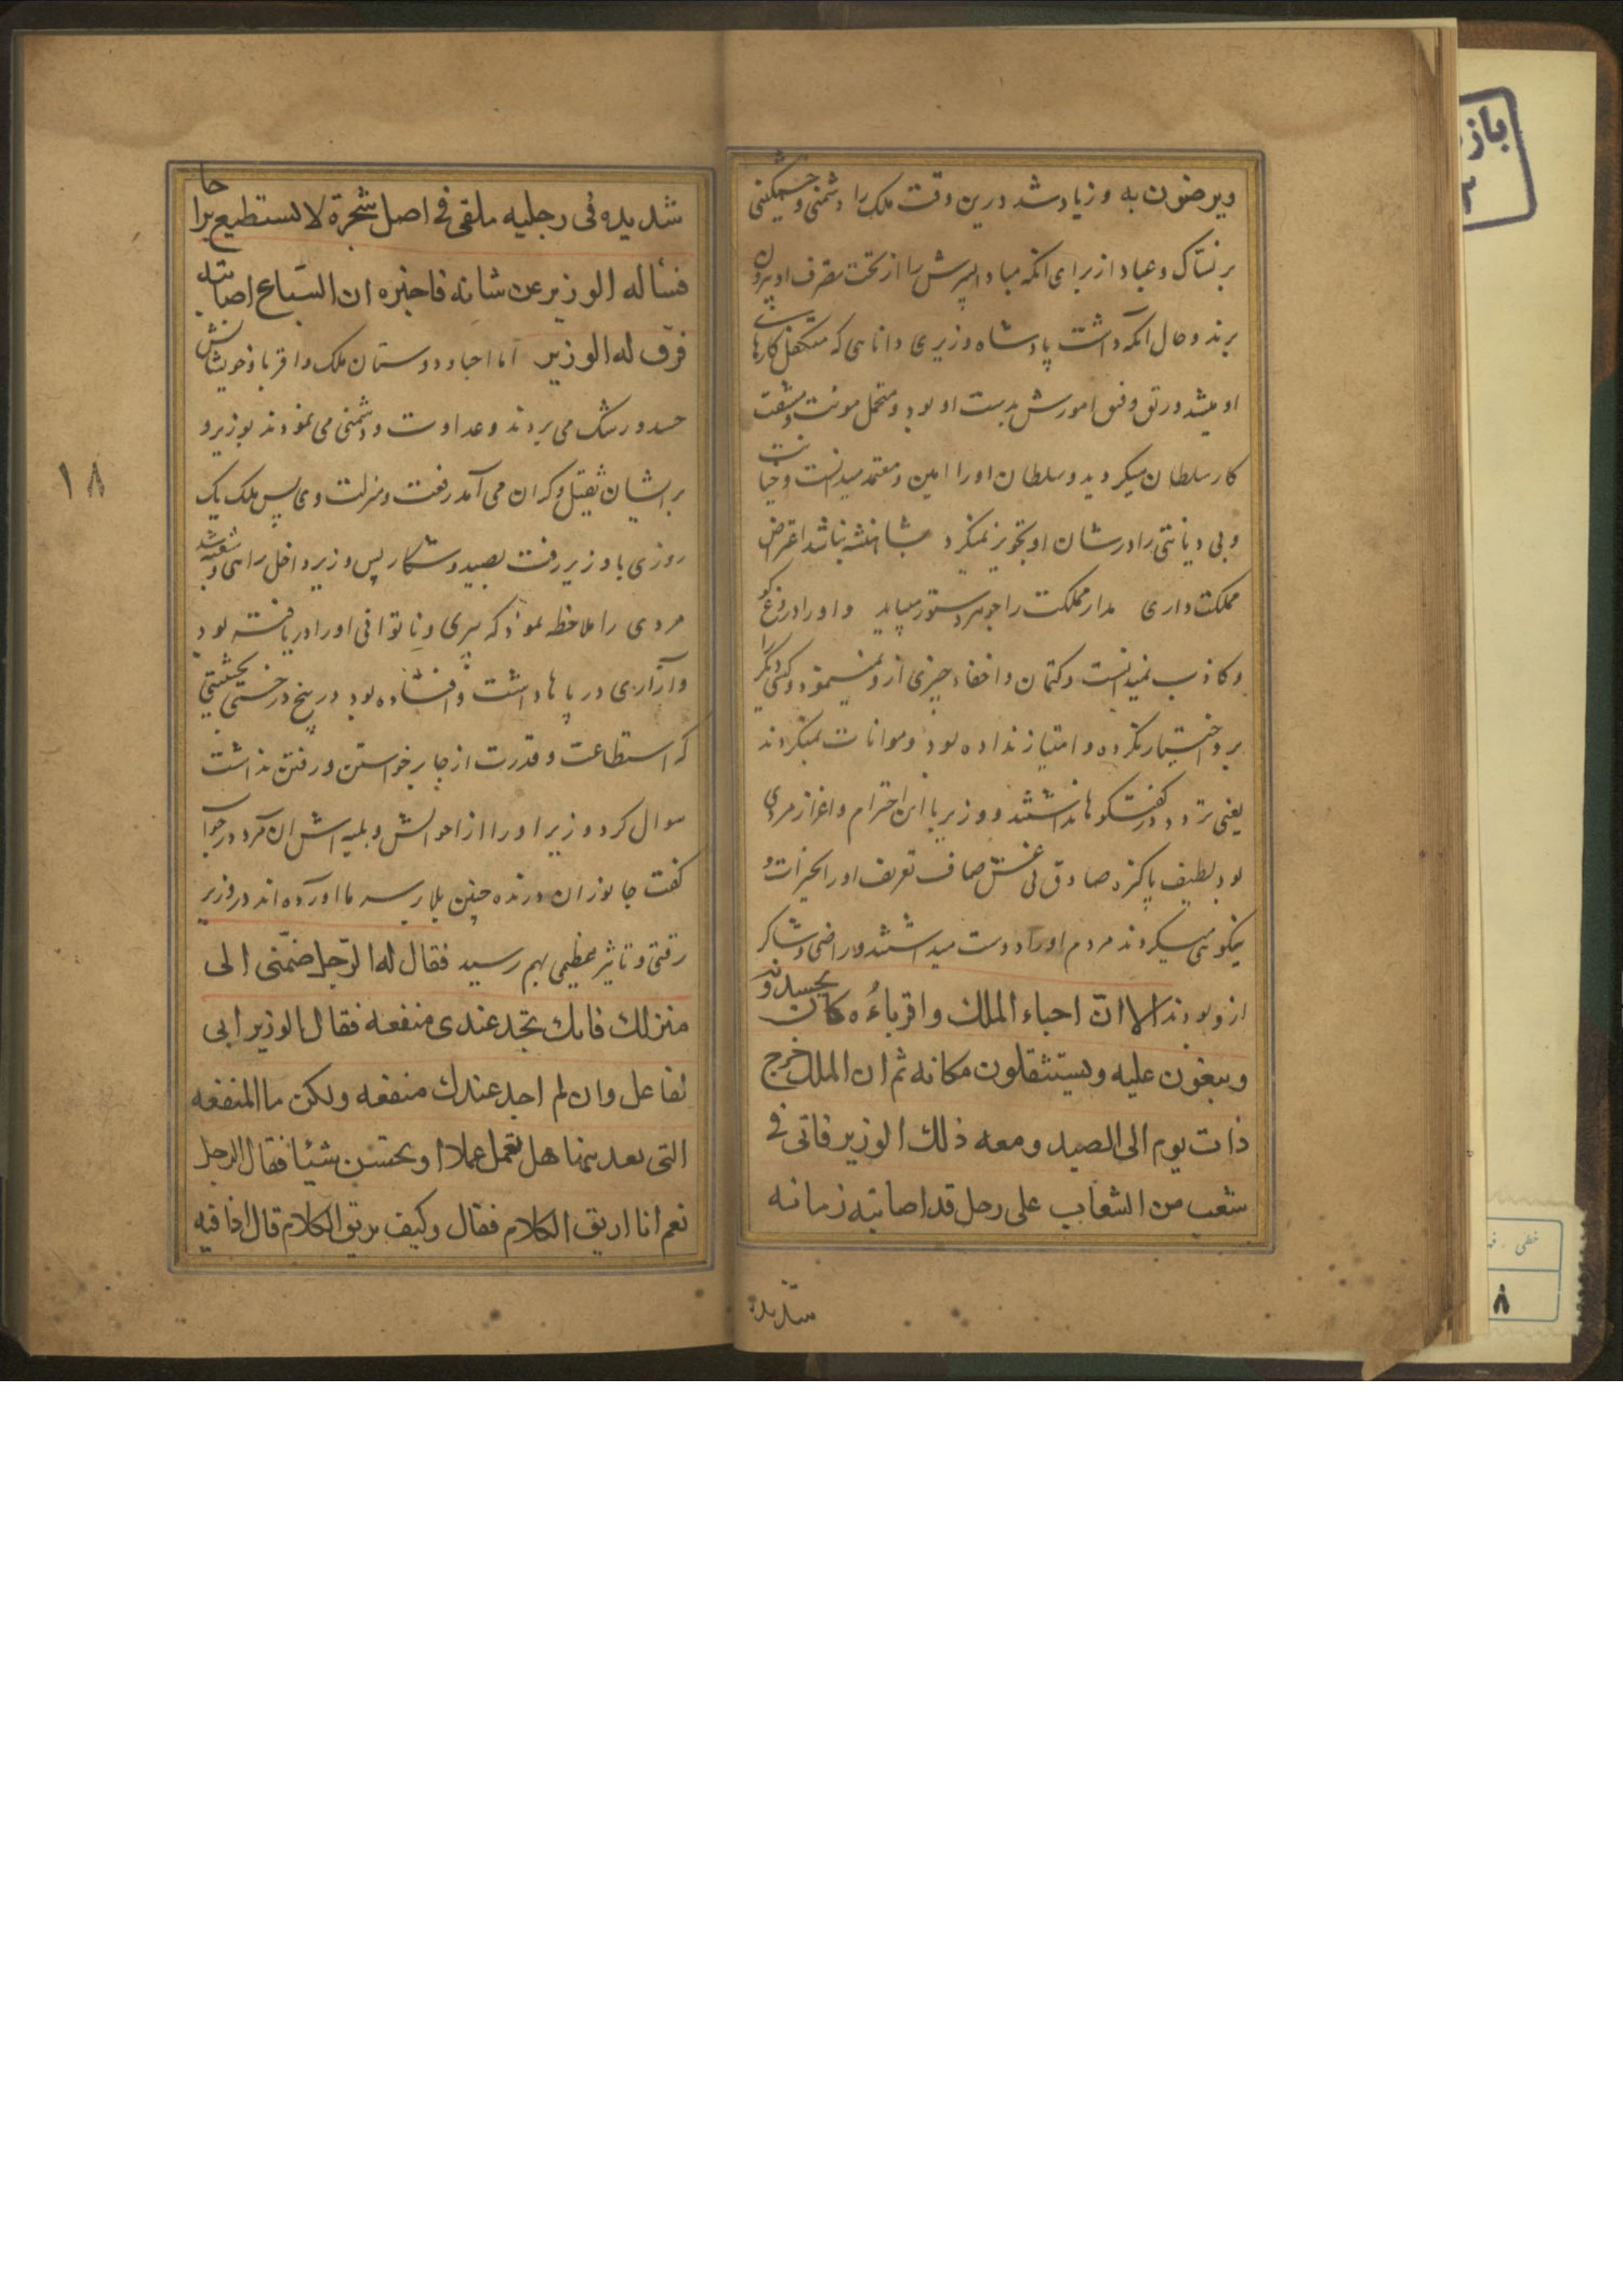 ویرضون به و زیاد شد درین وقت ملک را دشمنی و خشمگینی
بر نساک و عباد از برای آنکه مبادا پسرش را از تحت تصرف او بیرون
برند و حال آنکه داشت پادشاه وزیری دانای که متکفل کارهای
او میشد و رتق و فتق امورش بدست او بود و متحمل مونت و مشقت
کار سلطان میکردید و سلطان او را امین و معتمد میدانست و خیانت
و بی دیانتی را در شان او تجویز نمیکرد
مملکت داری مدار مملکت را او را دروغ کو
و کاذب نمیدانست و کتمان و اخفاء چیزی از و نمینمود و کسی دیگر را
برو اختیار نکرده و امتیاز نداده بود و موانات نمیکردند
یعنی تردد در گفتگوها نداشتند و وزیر با این احترام و اعزاز مردی
بود لطیف پاکیزه صادق بی غش صاف تعریف او را بخیرات و
نیکوئی میکردند مردم او را دوست میداشتند و راضی و شاکر
ازو بودند الا ان احباء الملک و اقرباءه کان یحسدونه
و یبغون علیه و یستثقلون مکانه ثم ان الملک خرج
ذات یوم الی الصید و معه ذلک الوزیر فاتی فی
شعب من الشعاب علی رجل قد اصابته زمانه
شدیده
شدیده فی رجلیه ملقی فی اصل شجرة لا یستطیع براحا
فسأله الوزیر عن شانه فاخبره ان السباع اصابته
فرق له الوزیر اما احبا و دوستان ملک و اقربا و خویشانش
حسد و رشک می بردند و عداوت و دشمنی می نمودند بوزیر و
بر ایشان ثقیل و گران می آمد رفعت و منزلت وی پس ملک یک
روزی با وزیر رفت بصید و شکار پس وزیر داخل راهی و شعبه شد
مردی را ملاحظه نمود که پیری و ناتوانی او را دریافته بود
و آزاری در پاها داشت و افتاده بود در بیخ درختی بحیثیتی
که استطاعت و قدرت از جا برخواستن و رفتن نداشت
سوال کرد وزیر او را از احوالش و بلیه اش آن مرد در جواب
گفت جانوران درنده چنین بلا بر سر ما آورده اند در وزیر
رقتی و تاثیر عظیمی بهم رسید فقال له الرجل ضمنی الی
منزلک فانک تجد عندی منفعه فقال الوزیر انی
لفاعل و ان لم اجد عندک منفعه و لکن ما المنفعه
التی تعدنیها هل تعمل عملا او تحسن شیئا فقال الرجل
نعم انا ارتق الکلام فقال و کیف ترتق الکلام قال اذا فیه
۱۸
باز
خطی
۸